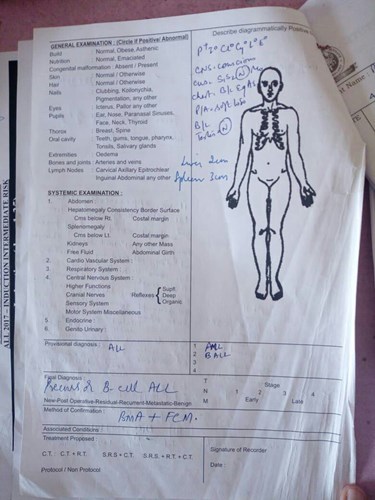 GENERAL EXAMINATION : (Circle if Positive/ Abnormal)
Build : Normal, Obese, Asthenic
Nutrition : Normal, Emaciated
Congenital malformation : Absent / Present
Skin : Normal / Otherwise
Hair : Normal / Otherwise
Nails : Clubbing, Koilonychia,
Pigmentation, any other
Eyes : Icterus, Pallor any other
Pupils : Ear, Nose, Paranasal Sinuses,
Face, Neck, Thyroid
Thorax : Breast, Spine
Oral cavity : Teeth, gums, tongue, pharynx,
Tonsils, Salivary glands
Extremities : Oedema
Bones and joints : Arteries and veins
Lymph Nodes : Cervical Axillary Epitrochlear
Inguinal Abdominal any other
Describe diagrammatically Positive
CNS - conscious
P/A - soft
B/L
Testis N
Liver 2cm
Spleen 1cm
SYSTEMIC EXAMINATION :
1. Abdomen :
Hepatomegaly Consistency Border Surface
Cms below Rt. Costal margin
Splenomegaly
Cms below Lt. Costal margin
Kidneys Any other Mass
Free Fluid Abdominal Girth
2. Cardio Vascular System :
3. Respiratory System :
4. Central Nervous System :
Higher Functions
Cranial Nerves Reflexes
Supfl.
Deep
Organic
Sensory System
Motor System Miscellaneous
5. Endocrine :
6. Genito Urinary :
Provisional diagnosis : ALL
1 AML
2 BALL
3
4
Final Diagnosis :
Precursor B cell ALL
New-Post Operative-Residual-Recurrent-Metastatic-Benign
T Stage
N 1 2 3 4
M Early Late
Method of Confirmation : BMA + FCM.
Associated Conditions :
Treatment Proposed
C.T. C.T + R.T. S.R.S + C.T. S.R.S. + R.T. + C.T.
Protocol / Non Protocol
Signature of Recorder
Date :
ALL 2017 – INDUCTION INTERMEDIATE RISK